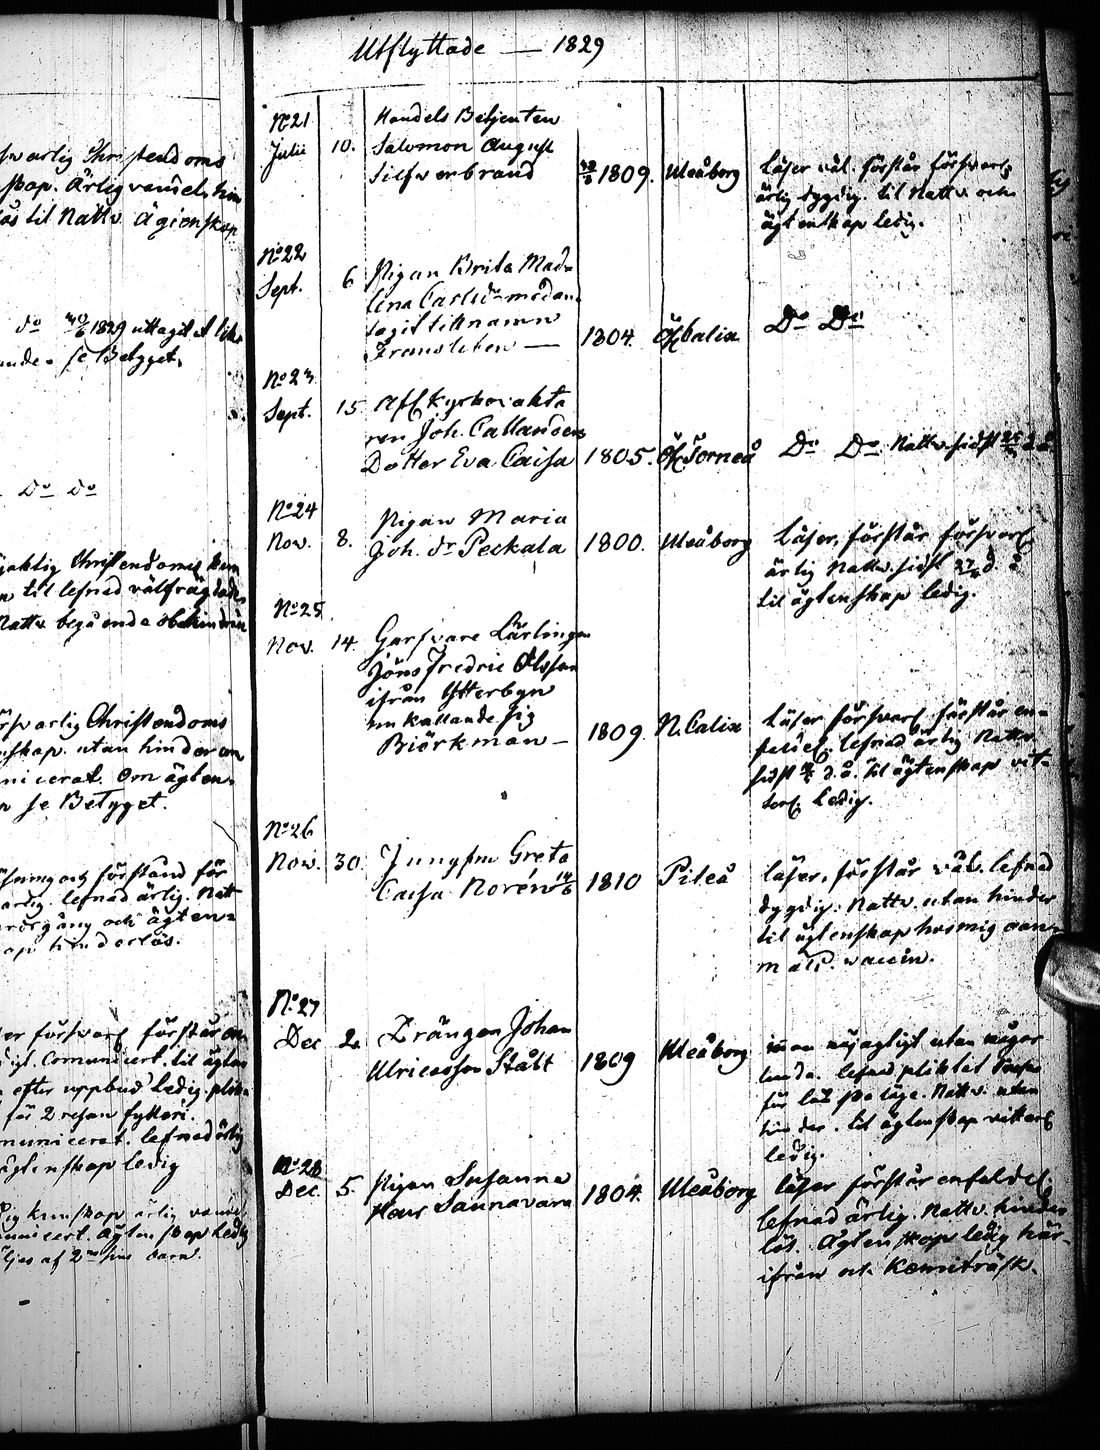 swarlig Christendoms
skap. Ärlig vandel, hin
lös til Nattv. Ägtenskap
do 1829 uttagit
ande. se Betyget.
Do Do
Christendoms kun
til lefnad välfrägdad,
Nattv. begående obehindrad
örswarlig Christendoms
skap. utan hinder
nicerat. Om ägten-
se Betyget.
och förstånd för
ardig. lefnad ärlig. Natt
vardsgång och ägten-
ap hinderlös.
er försvarl. förstår en
digt. Comunicert. til ägten
efter uppbud ledig. plik
för 2 resan fylleri.
municerat. lefnad ärlig
ägtenskap ledig
kunskap ärlig vandel
municert. Ägtenskap ledig
ljes af 2ne sine barn.
Utflyttade — 1829
No 21
Julii 10. Handels Betjenten
Salomon August
Silfwerbrand 1809. Uleåborg
Läser väl. förstår försvarl.
ärlig dygdig. til Nattv. och
ägtenskap ledig.
No 22
Sept. 6 Pigan Brita Mad-
lena Carlsdr medan
tagit tillnamn
Fransleben — 1804. Öf Calix Do Do
No 23
Sept. 15 Afl. Kyrkovakta
ren Joh. Callanders
Dotter Eva Caisa 1805. Öf Torneå Do Do Nattv. sidst d. å.
No 24
Nov. 8. Pigan Maria
Joh. dr Peckala 1800. Uleåborg
Läser, förstår försvarl.
ärlig Nattv. sidst d. å.
til ägtenskap ledig.
No 25
Nov. 14. Garfvare Lärlingen
Jöns Fredric Olsson
ifrån Ytterbyn
nu kallande sig
Biörkman — 1809. N. Calix
Läser försvarl. förstår en-
lefnad ärlig Nattv.
sidst d. å. til ägtenskap vit-
terl. ledig.
No 26
Nov. 30. Jungfru Greta
Caisa Norén 1810 Piteå
läser, förstår väl. lefnad
dygdig. Nattv. utan hinder
til ägtenskap hos mig
vaccin.
No 27
Dec 2. Drängen Johan
Ulricasson Stålt 1809 Uleåborg
innan nöjagtigt utan någor
lunda. lefnad pliktat
för Nattv. utan
hinder. til ägtenskap vitterl.
ledig.
No 28
Dec. 5. Pigan Susanna
Hans Saunavara 1804. Uleåborg
läser förstår enfaldel.
lefnad ärlig. Nattv. hinder
lös. Ägtenskap ledig här-
ifrån och Kemiträsk.